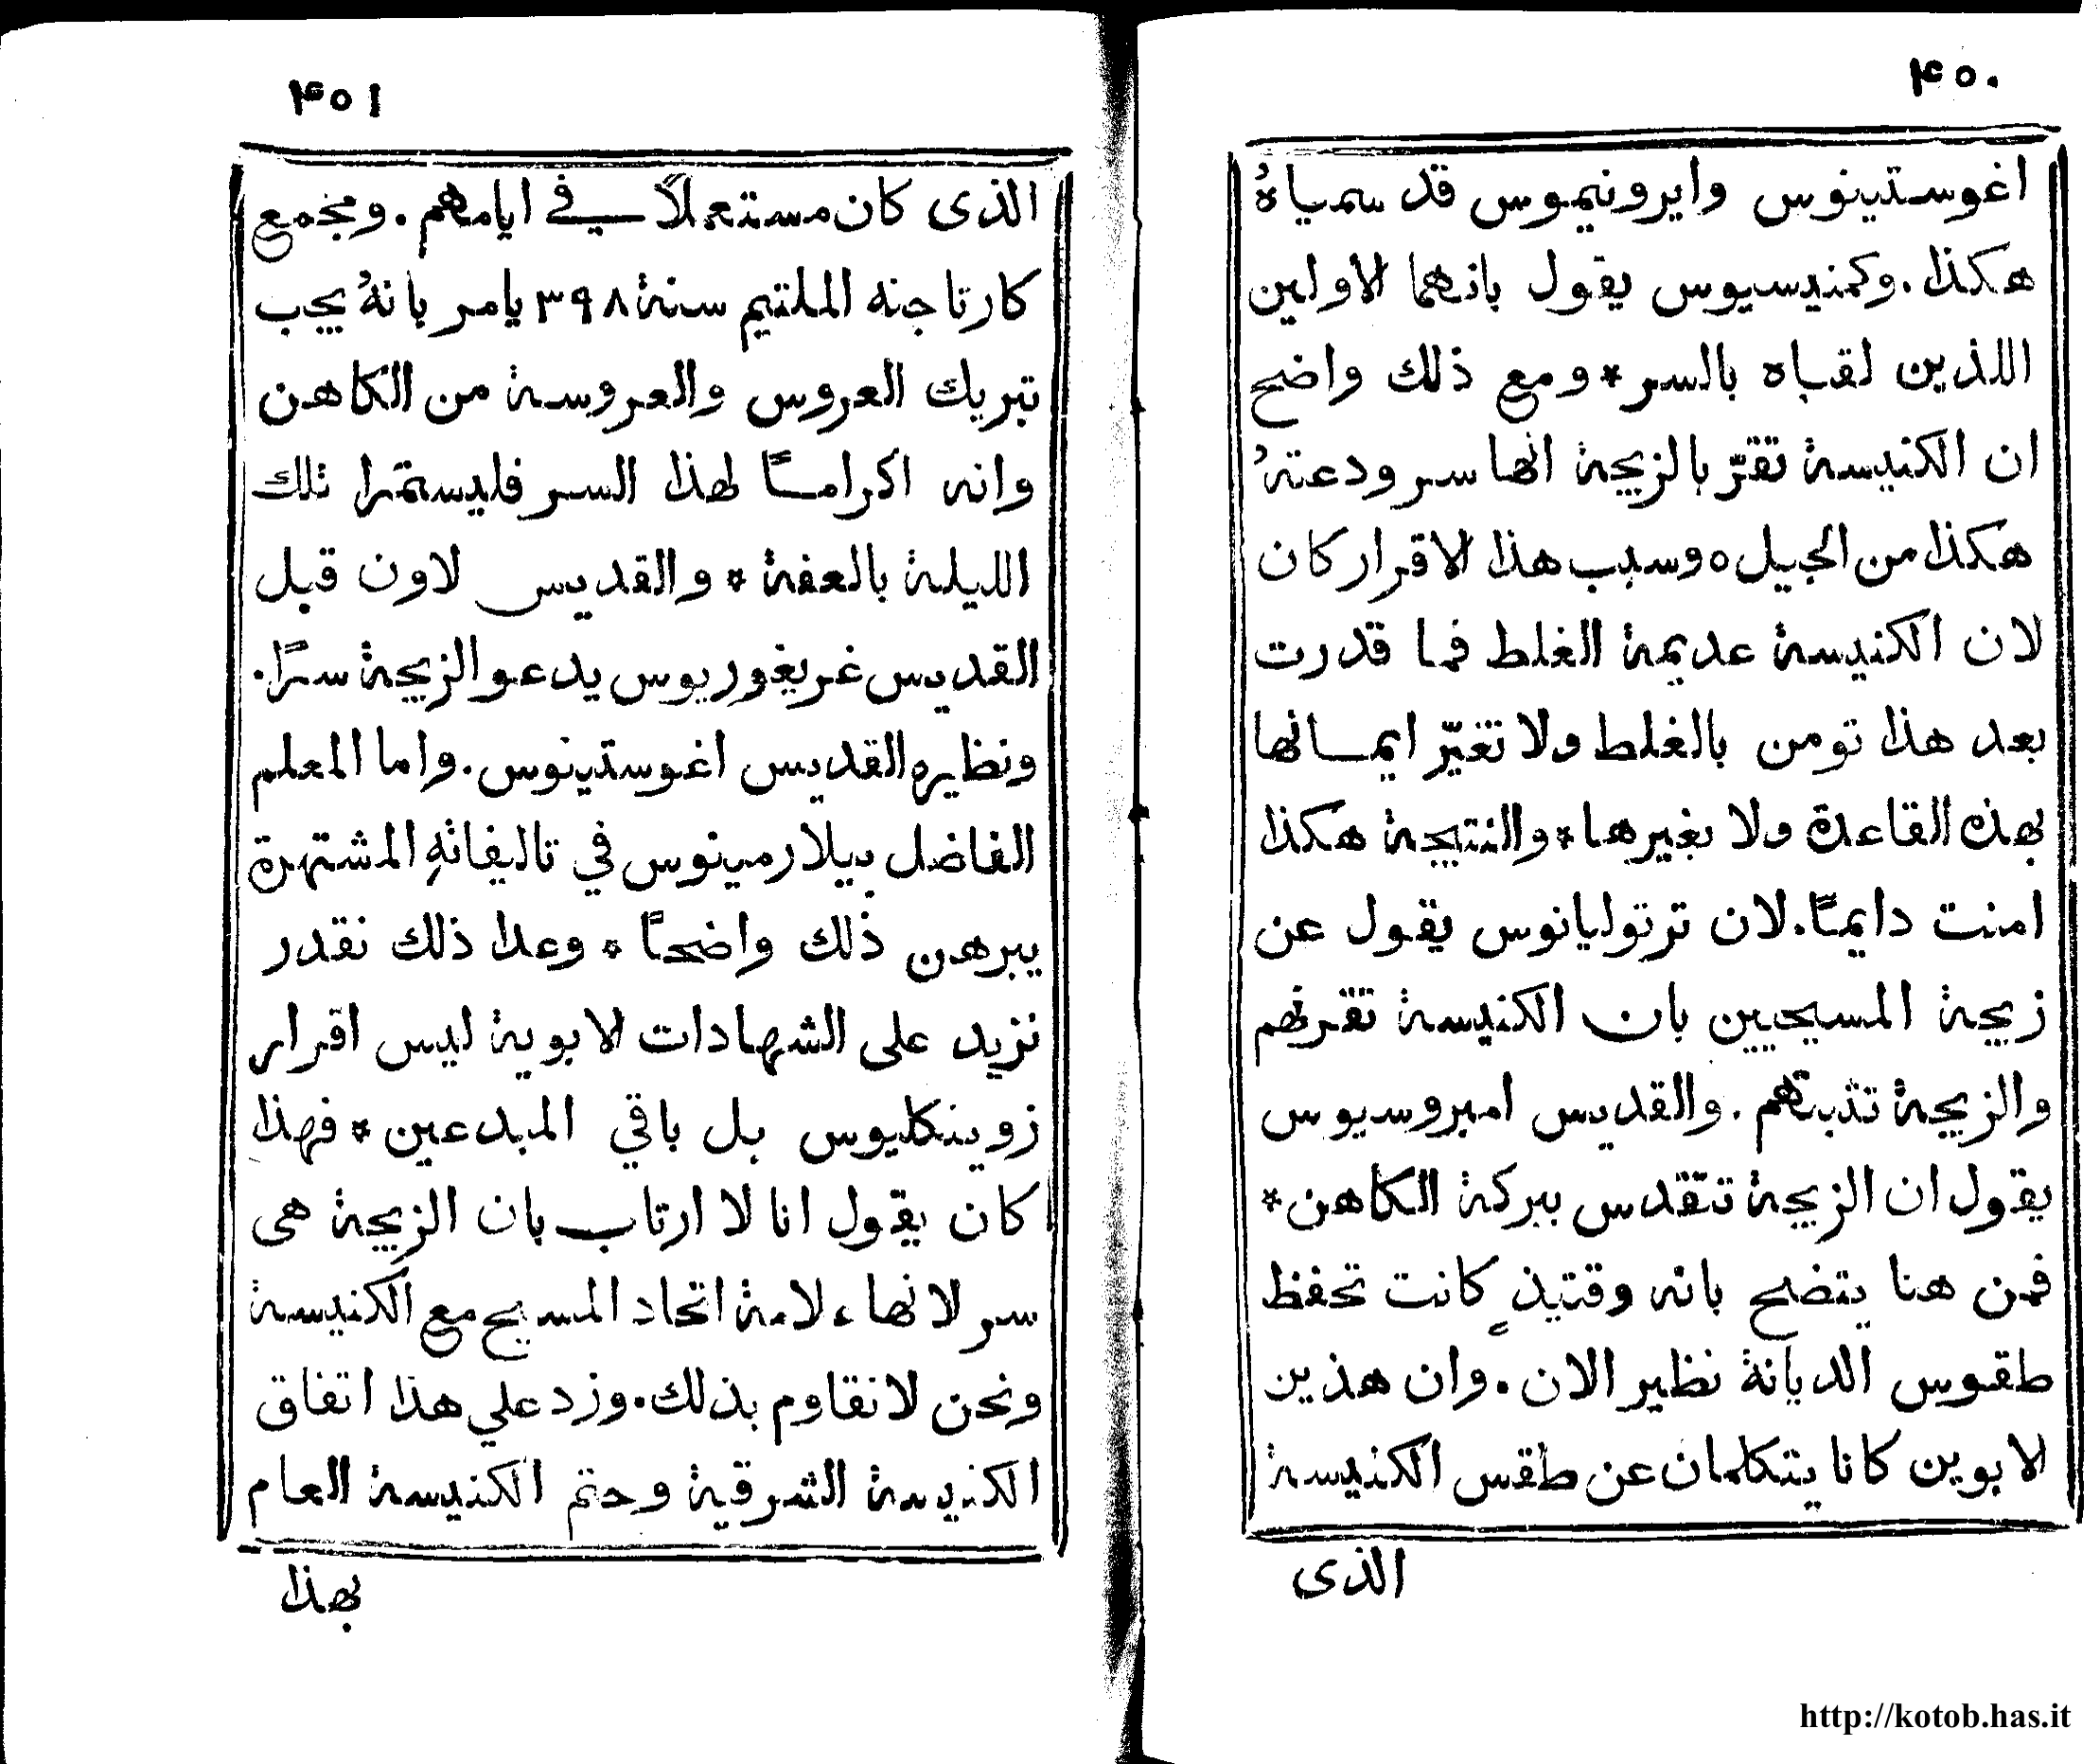 ٤٥٠
اغوستينوس وايرونيموس قد سمياهُ
هكذا. وكمنيسيوس يقول بانهما الاولين
اللذين لقباه بالسر * ومع ذلك واضح
ان الكنيسة تقرّ بالزيجة انها سر ودعتهُ
هكذا من الجيل ه وسبب هذا الاقرار كان
لان الكنيسة عديمة الغلط فما قدرت
بعد هذا تومن بالغلط ولا تغيّر ايمانها
بهذه القاعدة ولا بغيرها * والنتيجة هكذا
امنت دايمًا. لان ترتوليانوس يقول عن
زيجة المسيحيين بان الكنيسة تقرنهم
والزيجة تثبتهم. والقديس امبروسيوس
يقول ان الزيجة تتقدس ببركة الكاهن *
فمن هنا يتضح بانه وقتيذٍ كانت تحفظ
طقوس الديانة نظير الان. وان هذين
لابوين كانا يتكلمان عن طقس الكنيسة
الذى
٤٥١
الذى كان مستعملاً في ايامهم. ومجمع
كارتاجنه الملتيم سنة ٣٩٨ يامر بانهُ يجب
تبريك العروس والعروسة من الكاهن
وانه اكرامًا لهذا السر فليستمرا تلك
الليلة بالعفة * والقديس لاون قبل
القديس غريغوريوس يدعو الزيجة سرًا.
ونظيره القديس اغوستينوس. واما المعلم
الفاضل بيلارمينوس في تاليفاتهِ المشتهرة
يبرهن ذلك واضحًا * وعدا ذلك نقدر
نزيد على الشهادات الابوية ليس اقرار
زوينكليوس بل باقي المبدعين * فهذا
كان يقول انا لا ارتاب بان الزيجة هى
سر لانها علامة اتحاد المسيح مع الكنيسة
ونحن لا نقاوم بذلك. وزد علي هذا اتفاق
الكنيسة الشرقية وحتم الكنيسة العام
بهذا
http://kotob.has.it